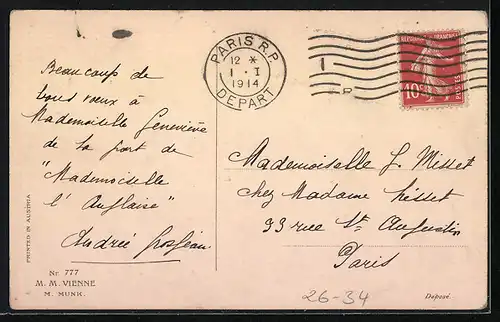 Beaucoup de
bons vœux à
Mademoiselle Geneviève
de la part de
"Mademoiselle
l'Anglaise"
Andrée
PRINTED IN AUSTRIA
Nr. 777
M. M. VIENNE
M. MUNK.
PARIS R.P.
12 *
1 · I
1914
DEPART
REPUBLIQUE FRANÇAISE
10c
POSTES
Mademoiselle G. Misset
chez Madame
33 rue St. Augustin
Paris
26-34
Deposé.